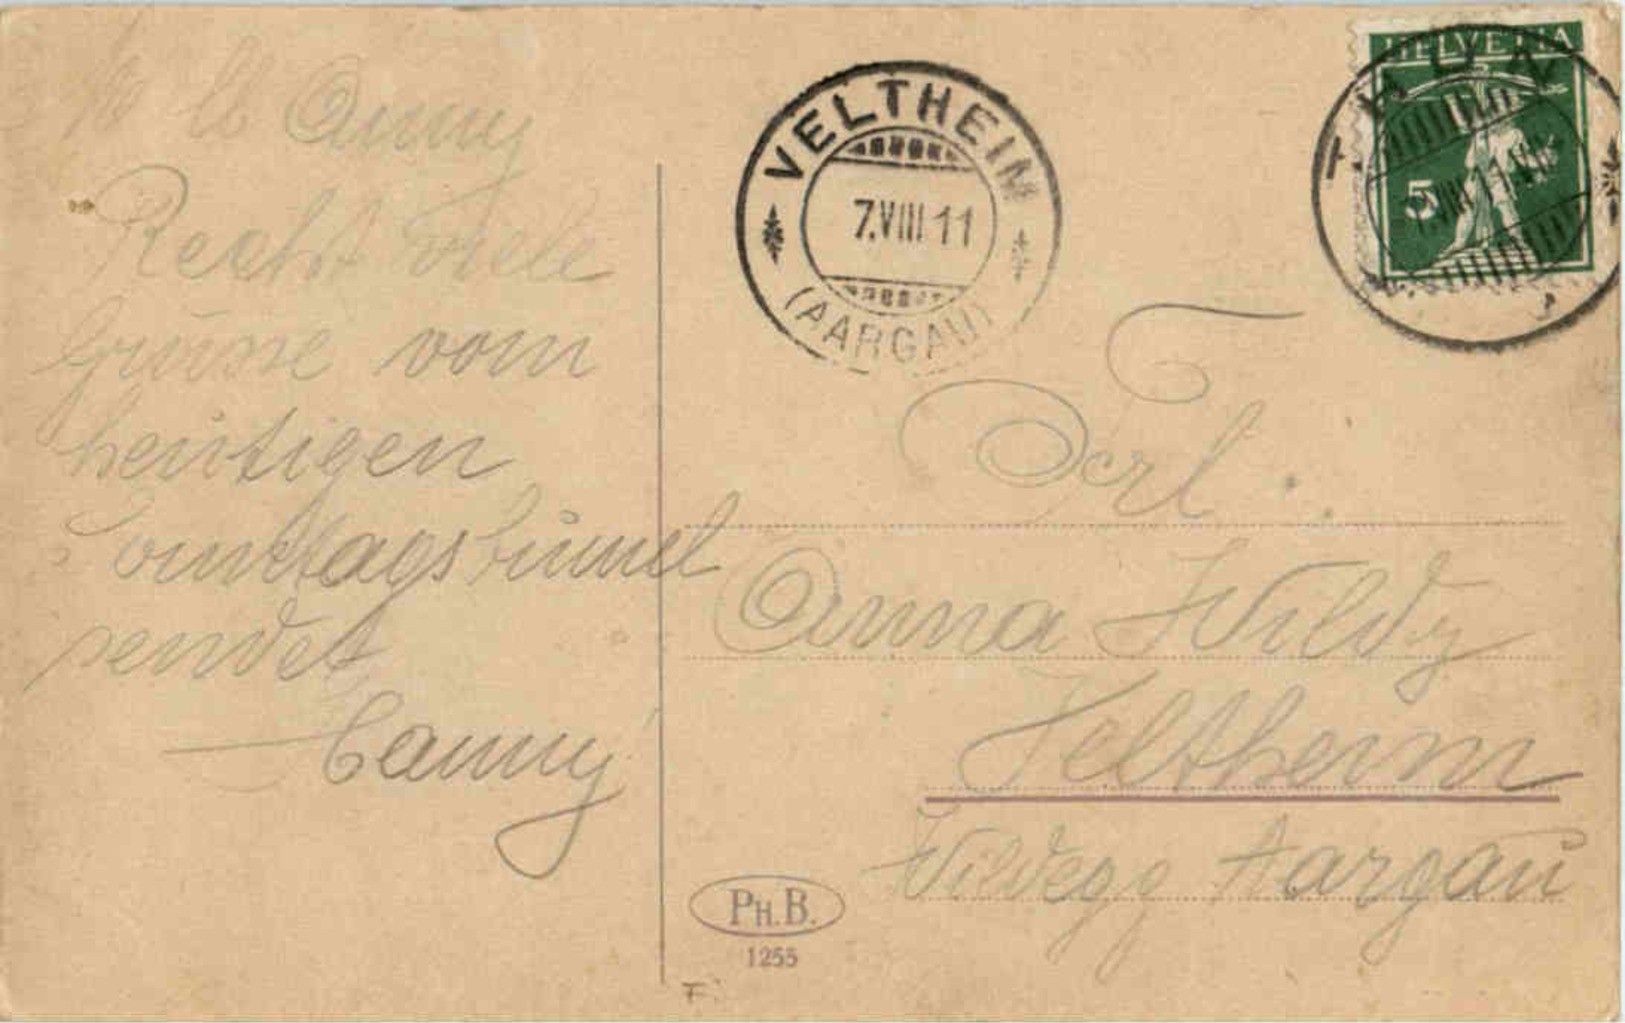 Anny
Recht viele
Grüsse vom
heutigen
sendet
VELTHEIM
7.VIII 11
(AARGAU)
HELVETIA
5
THUN
Frl.
Anna Wildy
Veltheim
Wildegg Aargau
PH.B.
1255
F.